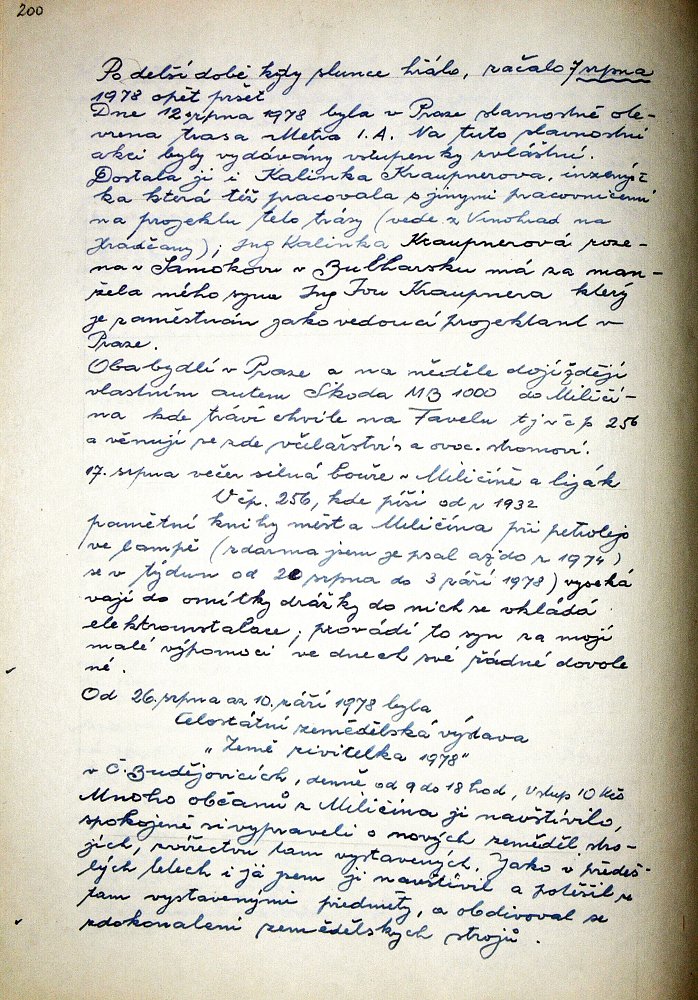 200
Po delší době kdy slunce hřálo, začalo 7 srpna
1978 opět pršet
Dne 12 srpna 1978 byla v Praze slavnostně ote-
vřena trasa Metra I.A. Na tuto slavnostní
akci byly vydávány vstupenky zvláštní.
Dostala ji i Kalinka Kraupnerova, inženýr
ka která též pracovala s jinými pracovnicemi
na projektu této trásy (vede z Vinohrad na
Hradčany); Ing Kalinka Kraupnerová roze-
na v Samokovu v Bulharsku má za man-
žela mého syna Ing Ivu Kraupnera který
je zaměstnán jako vedoucí projektant v
Praze.
Oba bydlí v Praze a na neděle dojíždějí
vlastním autem Škoda MB 1000 do Miličí-
na kde tráví chvíle na Favelu tj v č p 256
a věnují se zde včelařství a ovoc. stromoví.
17. srpna večer silná bouře v Miličíně a liják
V čp. 256, kde píší od r 1932
pamětní knihy města Miličína při petrolejo
vé lampě (zdarma jsem je psal až do r 1974)
se v týdnu od 20 srpna do 3 září 1978) vyseká
vají do omítky drážky do nich se vkládá
elektroinstalace; provádí to syn za mojí
malé výpomoci ve dnech své řádné dovole
né.
Od 26. srpna až 10. září 1978 byla
Celostátní zemědělská výstava
"Země živitelka 1978"
v Č. Budějovicích, denně od 9 do 18 hod, Vstup 10 Kčs
Mnoho občanů z Miličína ji navštívilo,
spokojeně si vypraveli o nových zeměděl. stro-
jích, zvířectvu tam vystavených. Jako v předeš-
lých letech i já jsem ji navštívil a potěšil se
tam vystavenými předměty, a obdivoval se
zdokonalení zemědělských strojů.